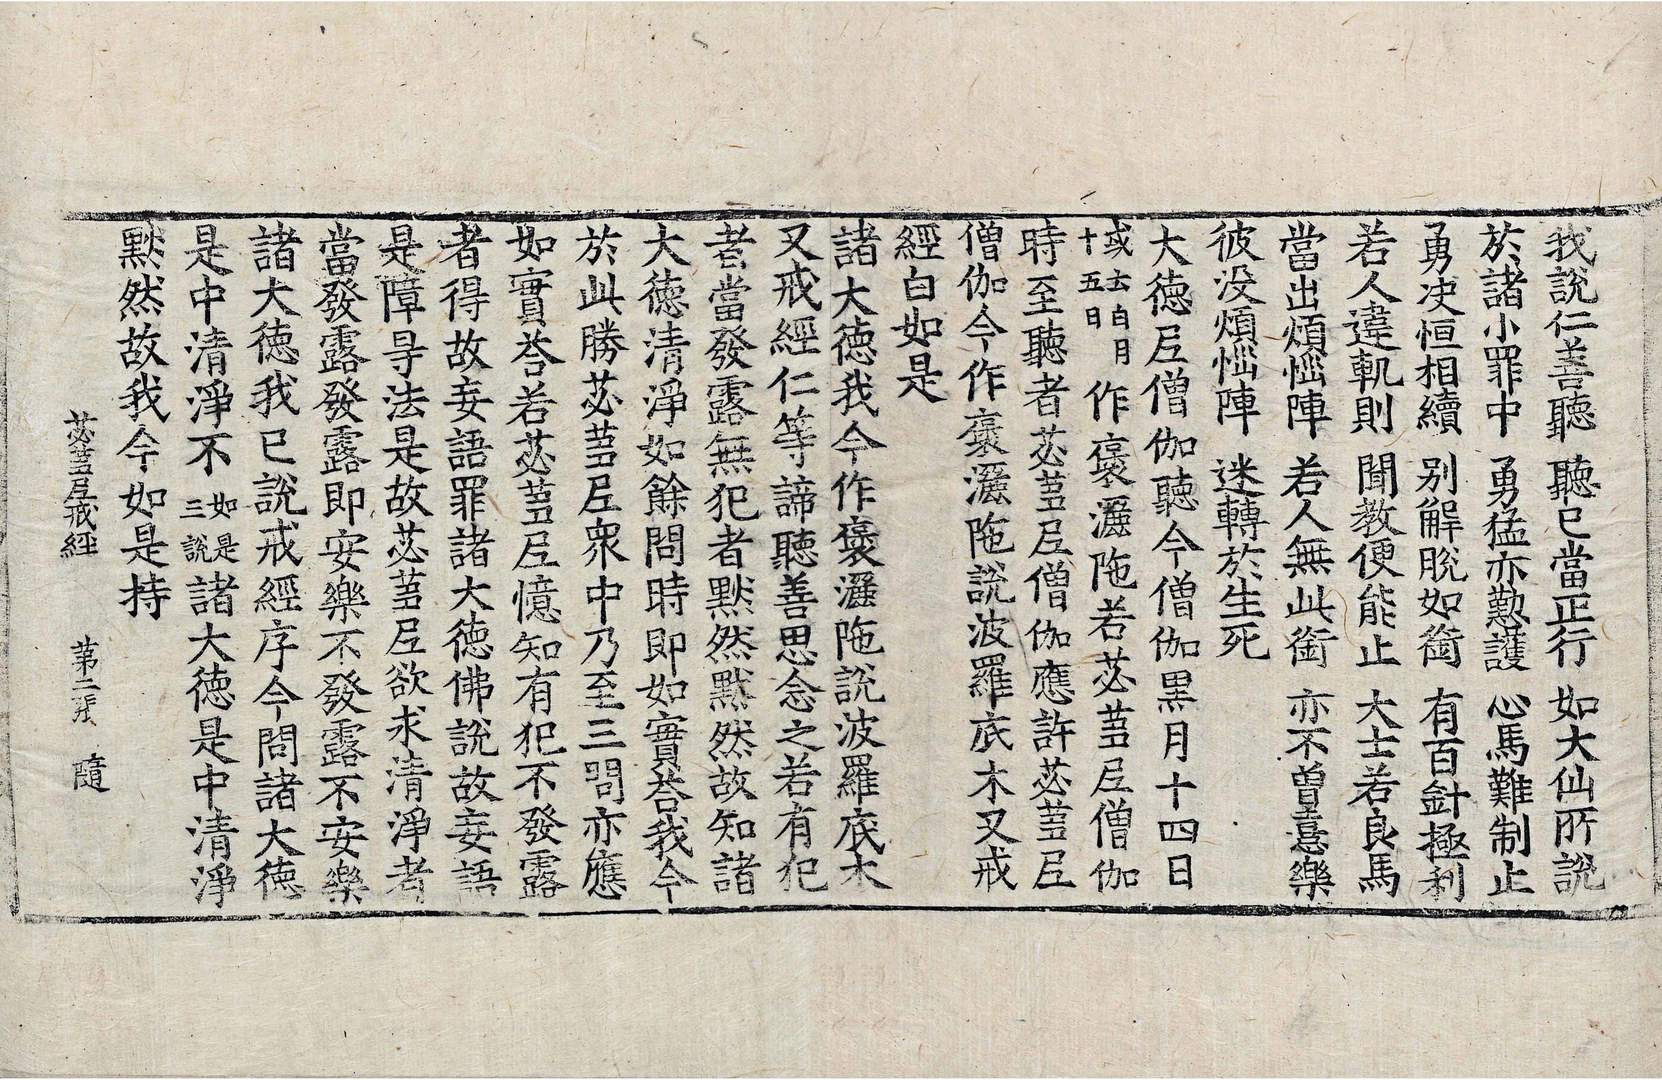 我說仁善聽 聽已當正行 如大仙所說
於諸小罪中 勇猛亦勤護 心馬難制止
勇决恒相續 别解脫如銜 有百針極利
若人違軌則 聞教便能止 大士若良馬
當出煩惱陣 若人無此銜 亦不曾憙樂
彼没煩惱陣 迷轉於生死
大德尼僧伽聽今僧伽黑月十四日
或云白月
十五日
作褒灑陁若苾蒭尼僧伽
時至聽者苾蒭尼僧伽應許苾蒭尼
僧伽今作褒灑陁說波羅底木叉戒
經白如是
諸大德我今作褒灑陁說波羅底木
叉戒經仁等諦聽善思念之若有犯
者當發露無犯者默然默然故知諸
大德清淨如餘問時即如實荅我今
於此勝苾蒭尼衆中乃至三問亦應
如實荅若苾蒭尼憶知有犯不發露
者得故妄語罪諸大德佛說故妄語
是障㝵法是故苾蒭尼欲求清淨者
當發露發露即安樂不發露不安樂
諸大德我已說戒經序今問諸大德
是中清淨不
如是
三說
諸大德是中清淨
默然故我今如是持
苾蒭尼戒經 第二張 隨